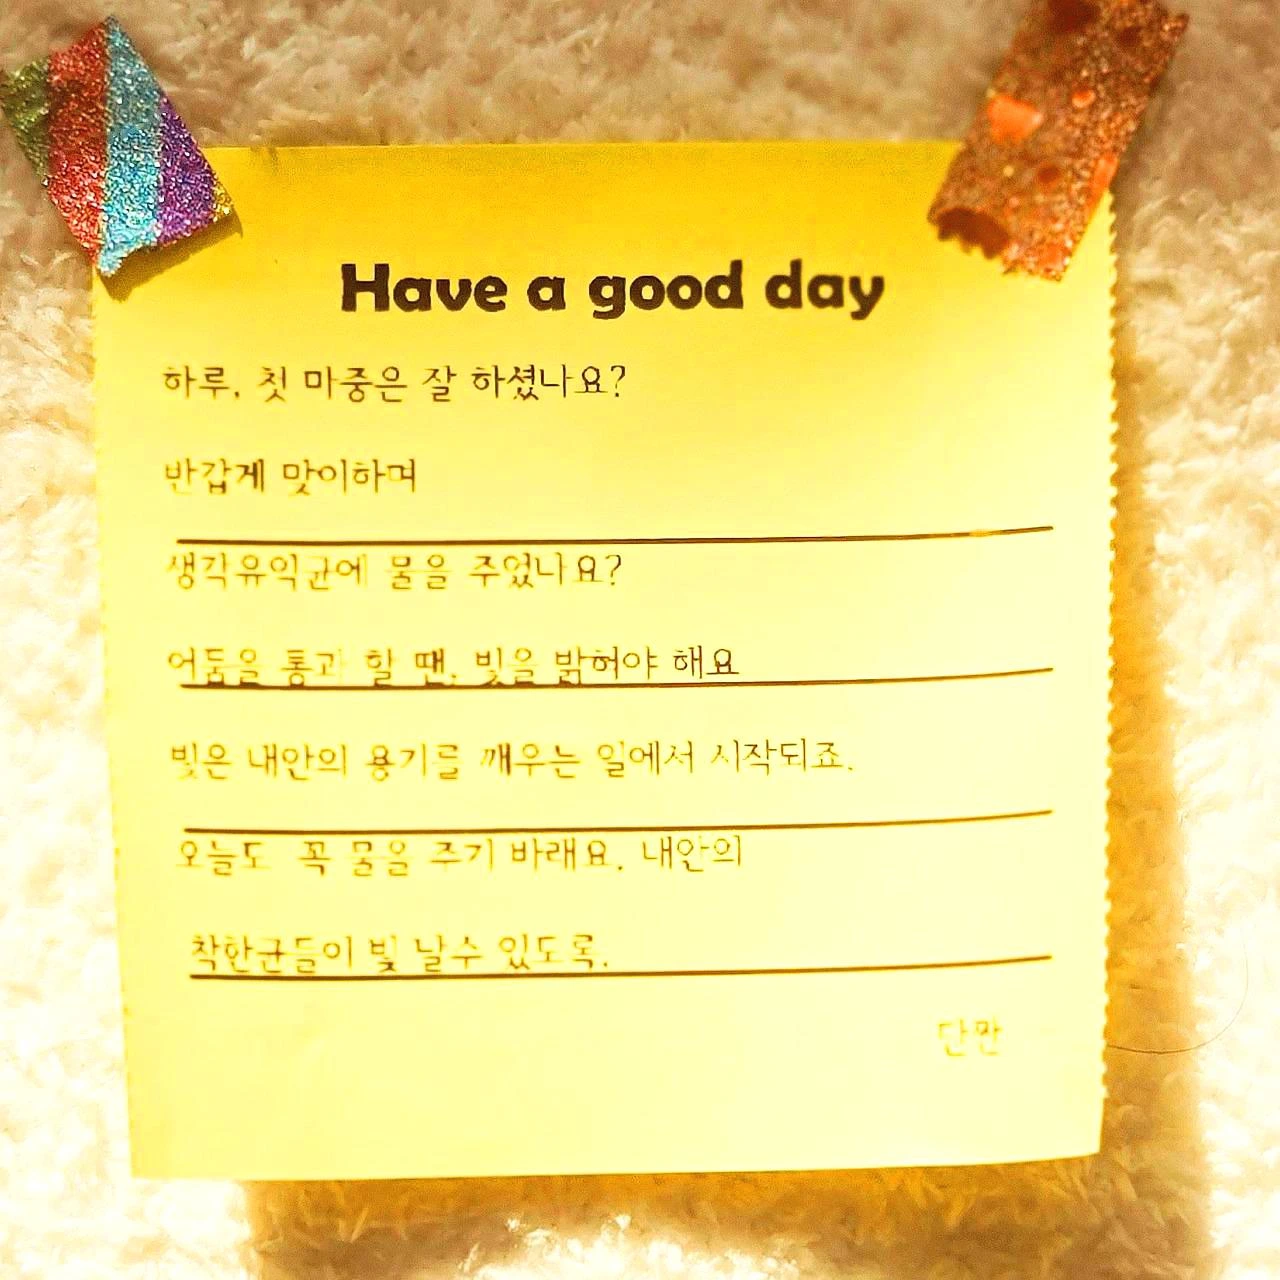 Have a good day
하루, 첫 마중은 잘 하셨나요?
반갑게 맞이하며
생각유익균에 물을 주었나요?
어둠을 통과 할 땐, 빛을 밝혀야 해요
빛은 내안의 용기를 깨우는 일에서 시작되죠.
오늘도 꼭 물을 주기 바래요. 내안의
착한균들이 빛 날수 있도록.
단만